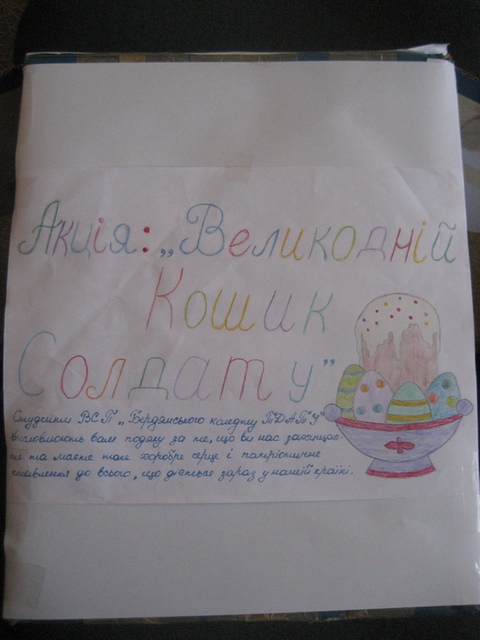 Акція: „Великодній
Кошик
Солдату"
Студенти ВСП „Бердянського коледжу ТДАТУ"
висловлюють вам подяку за те, що ви нас захищає-
те та маєте таке хоробре серце і патріотичне
ставлення до всього, що діється зараз у нашій країні.